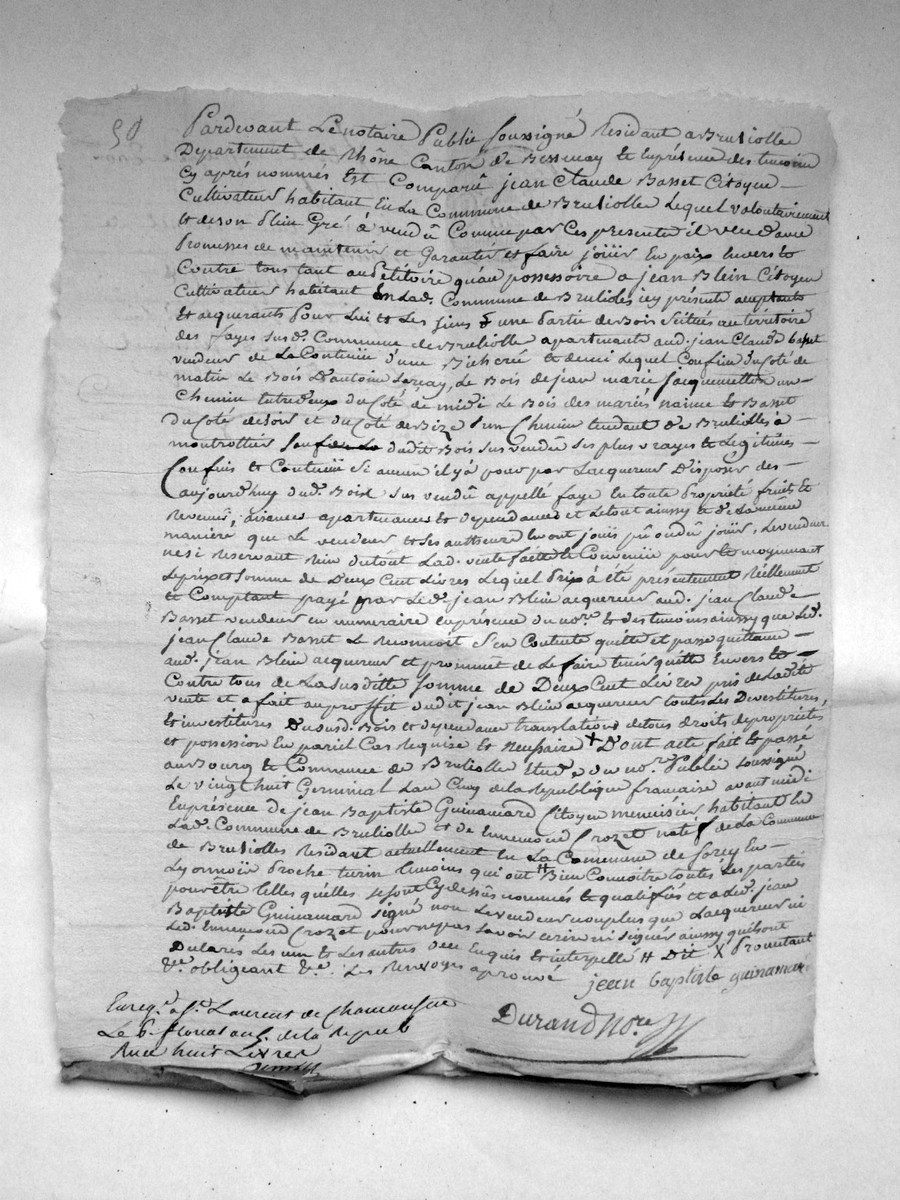 50
Pardevant Le notaire Public soussigné Résidant a Brulliolle
Departement de Rhône Canton de Bessenay Et En présence des temoins
Cy après nommés Est Comparû jean Claude Basset Citoyen
Cultivateur habitant En La Commune de Brulliolle Lequel volontairement
Et de son plein Gré à vendû Comme par Ces presentes il vend avec
Promesses de maintenir et Garantir et faire joüir En paix Envers Et
Contre tous tant au Petitoire qu'au possessoire a jean Blein Citoyen
Cultivateur habitant En Lad. Commune de Bruliolles icy présent acceptant
Et acquerants Pour Lui Et Les siens une Partie de Bois Situés au territoire
des fayes susd. Commune de Brulliolle apartenants aud. jean Claude Basset
vendeur de La Contenüe d'une Bicherée Et demi Lequel Confine du Coté de
matin Le Bois D'antoine , Le Bois de jean marie Jacquemetton un
Chemin Entre deux du Coté de midi Le Bois des mariés Et Basset
Du Coté de soir et du Coté de Bize d'un Chemin tendant de Brulliolles à
montrottier dudit Bois sus vendû ses plus vrayes Et Legitimes
Confins Et Contenüe Si aucun il y à pour par L'acquereur Disposer des
aujourd'huy dud. Bois sus vendû appellé faye En toute Propriété fruits Et
Revenus, aisances apartenances Et dependances et Le tout ainssy Et de La même
manière que Le vendeur Et ses autheurs En ont joüis pû ou dû joüir, Le vendeur
ne si Réservant Rien du tout Lad. vente faitte Et Convenüe pour Et moyennant
Le prix et Somme de Deux Cent Livres Lequel Prix à été présentement Réellement
Et Comptant payé par Led. jean Blein acquereur aud. jean Claude
Basset vendeur en numeraire En présence du no.re Et des temoins ainssy que Led.
jean Claude Basset Le Reconnoit S'en Contente quitte et passe quittance
aud. jean Blein acquereur et promet de Le faire tenir quitte Envers Et
Contre tous de La susditte Somme de Deux Cent Livres prix de Laditte
vente et a fait au proffit dudit jean Blein acquereur toutes Les Devestitures,
Et investitures Du susd. Bois et dependances translations de tous droits de propriétés
et possession En pareil Cas Requise Et necessaire X Dont acte fait Et passé
au Bourg Et Commune de Brulliolle Etude du no.re Public soussigné
Le vingt huit Germinal L'an Cinq de La République française avant midi
En présence de jean Baptiste Guinamard Citoyen menuisier habitant En
Lad. Commune de Brulliolle et de Ennemond Crozet natif de La Commune
de Brulliolles Résidant actuellement En La Commune de En
Lyonnois Proche turin temoins qui ont # Bien Connoitre toutes Les parties
pour être telles qu'elles se sont Cy dessûs nommées Et qualifiés et a Led. jean
Baptiste Guinamard signé non Le vendeur non plus que L'acquereur ni
Led. Ennemond Crozet pour ne pas savoir ecrire ni signer ainssy qu'ils ont
Déclarés Les uns Et Les autres De ce Enquis et interpellé # Dit X Promettant
&c. obligeant &c. Les Renvoyes aprouvé
jean baptiste guinamard
Durand No.re
Enreg.é a S.t Laurent de Chamousset
Le 6 floreal an 5. de La Repub
Recu huit Livres